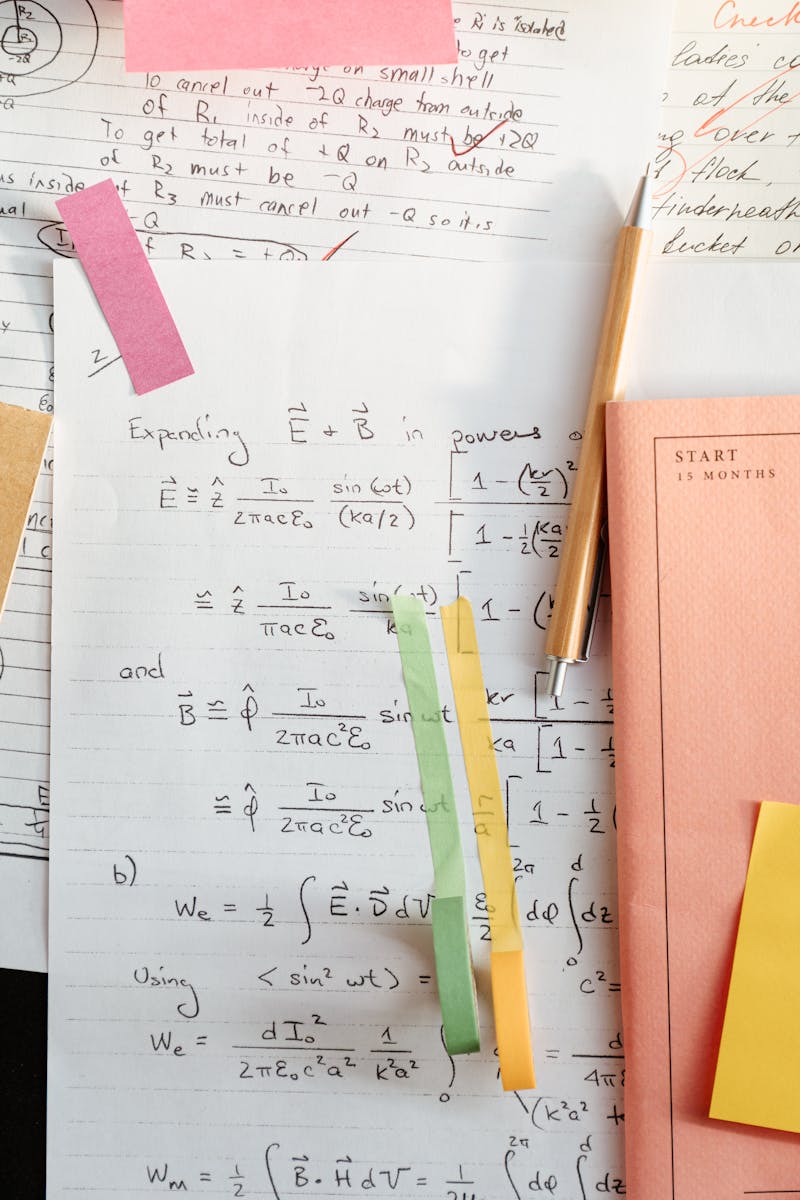 R2
R1
-2Q
+Q
-Q
R1 is isolated
to get
charge on small shell
To cancel out -2Q charge from outside
of R1 inside of R2 must be +2Q
To get total of +Q on R2 outside
of R2 must be -Q
us inside of R3 must cancel out -Q so it,s
-Q
Check
ladies'
at the
over
flock,
underneath
Bucket
2
Expanding E⃗ + B⃗ in powers
E⃗ ≅ ẑ I₀/(2πacε₀) sin(ωt)/(ka/2) [1 - (kr/2)²
[1 - 1/2(ka/2
≅ ẑ I₀/(πacε₀) sin(ωt)/ka [1 - (
and
B⃗ ≅ φ̂ I₀/(2πac²ε₀) sin ωt kr [1 - 1/
ka [1 - 1/
≅ φ̂ I₀/(2πac²ε₀) sin ωt r/a [1 - 1/2(
b)
We = 1/2 ∫ E⃗ · D⃗ dV ε₀/2 ∫ 2π dφ ∫₀ d dz
Using < sin² ωt) = c² =
We = dI₀²/(2πε₀c²a²) 1/(k²a²) ∫₀ = d/4πε
(k²a² +
Wm = 1/2 ∫ B⃗ · H⃗ dV = 1/ ∫ 2π dφ ∫ d dz
START
15 MONTHS